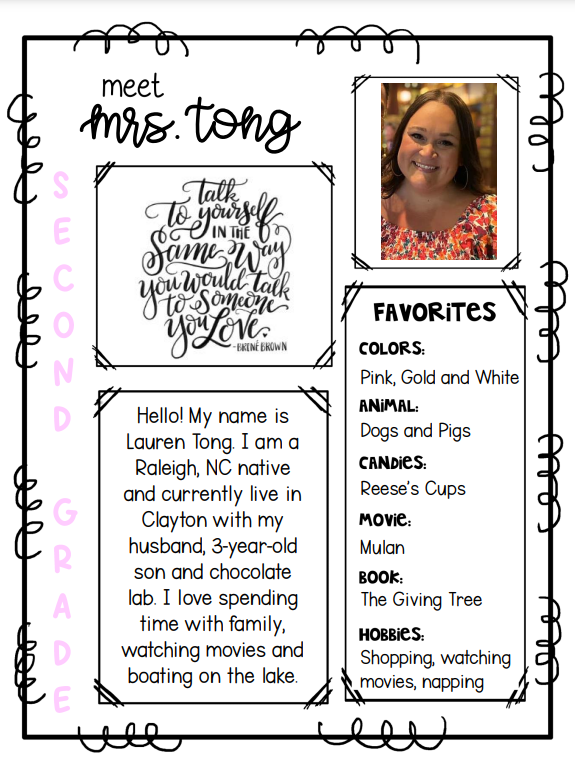 meet
mrs. tong
SECOND GRADE
talk
to yourself
IN THE
Same Way
you would talk
to Someone
you Love.
-BRENÉ BROWN
Hello! My name is
Lauren Tong. I am a
Raleigh, NC native
and currently live in
Clayton with my
husband, 3-year-old
son and chocolate
lab. I love spending
time with family,
watching movies and
boating on the lake.
FAVORITES
COLORS:
Pink, Gold and White
ANIMAL:
Dogs and Pigs
CANDIES:
Reese's Cups
MOVIE:
Mulan
BOOK:
The Giving Tree
HOBBIES:
Shopping, watching
movies, napping